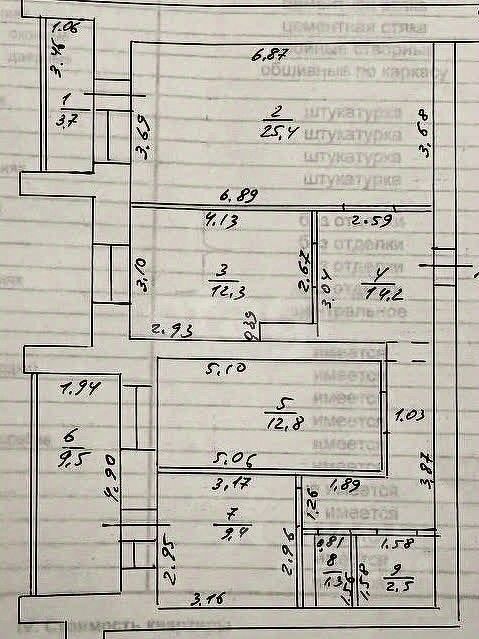 цементная стяжка
обшивные по каркасу
1.06
3.46
6.87
1
3.7
2
25,4
штукатурка
штукатурка
штукатурка
штукатурка
3,69
3,68
6.89
4.13
2.59
без отделки
без отделки
3,10
3
12,3
2.67
3.04
4
14,2
2.93
0,39
имеется
5.10
имеется
1.94
имеется
5
12,8
1.03
6
9,5
имеется
имеется
5.06
3,87
4.90
3,17
1,89
имеется
1,26
имеется
7
9,4
2.95
2.96
0,81
1.58
8
1,3
1.58
1.58
9
2,5
3,16
IV. Стоимость квартиры